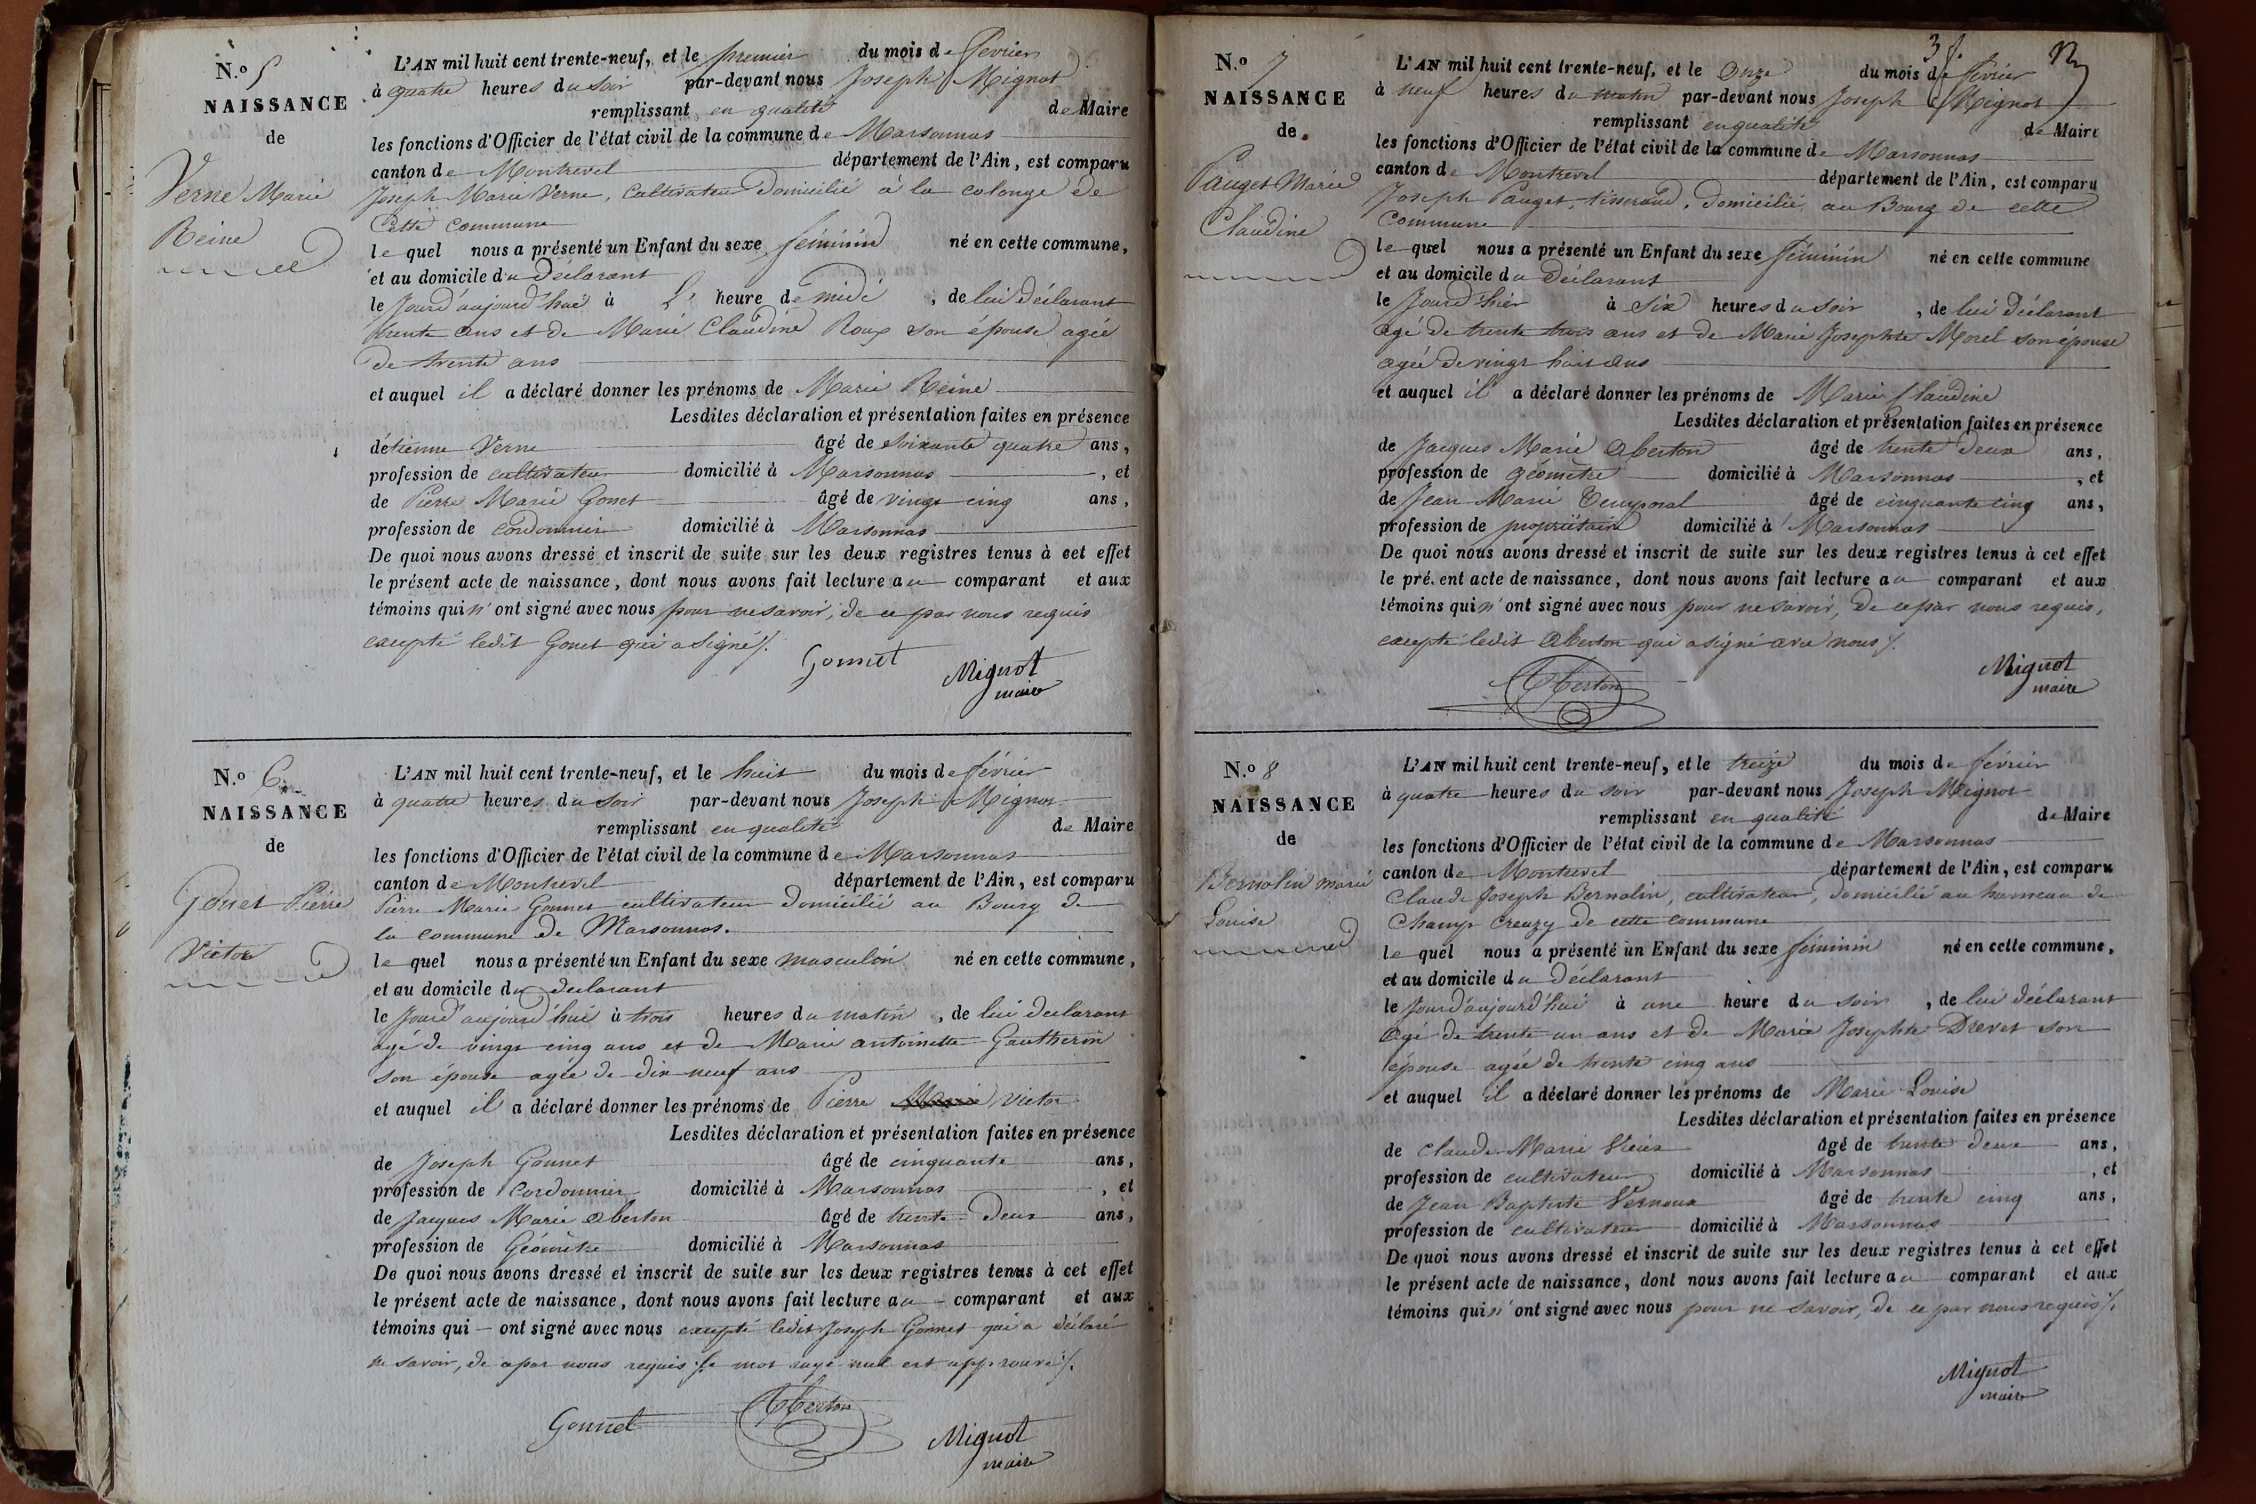 N.o 5
NAISSANCE
de
Verne Marie
Reine
L'AN mil huit cent trente-neuf, et le premier du mois de février
à quatre heures du soir par-devant nous Joseph Mignot
remplissant en qualité de Maire
les fonctions d'Officier de l'état civil de la commune de Marsonnas
canton de Montrevel département de l'Ain, est comparu
Joseph Marie Verne, cultivateur domicilié à la colonge de
cette commune
le quel nous a présenté un Enfant du sexe féminin né en cette commune,
et au domicile du Déclarant
le jourd'aujourd'hui à L' heure de midi, de lui déclarant
trente ans et de Marie Claudine Roux son épouse agée
de trente ans
et auquel il a déclaré donner les prénoms de Marie Reine
Lesdites déclaration et présentation faites en présence
détienne Verne âgé de soixante quatre ans,
profession de cultivateur domicilié à Marsonnas, et
de Pierre Marie Gonet âgé de vingt cinq ans,
profession de cordonnier domicilié à Marsonnas
De quoi nous avons dressé et inscrit de suite sur les deux registres tenus à cet effet
le présent acte de naissance, dont nous avons fait lecture au comparant et aux
témoins qui n'ont signé avec nous pour ne savoir, de ce par nous requis
excepté ledit Gonet qui a signé ./.
Gonnet Mignot
maire
N.o 6
NAISSANCE
de
Gonet Pierre
Victor
L'AN mil huit cent trente-neuf, et le huit du mois de février
à quatre heures du soir par-devant nous Joseph Mignot
remplissant en qualité de Maire
les fonctions d'Officier de l'état civil de la commune de Marsonnas
canton de Montrevel département de l'Ain, est comparu
Pierre Marie Gonnet cultivateur domicilié au Bourg de
la commune de Marsonnas.
le quel nous a présenté un Enfant du sexe masculin né en cette commune,
et au domicile du declarant
le jourd'aujourd'hui à trois heures du matin, de lui declarant
agé de vingt cinq ans et de Marie antoinette Gautherin
son épouse agée de dix neuf ans
et auquel il a déclaré donner les prénoms de Pierre Marie Victor
Lesdites déclaration et présentation faites en présence
de Joseph Gonnet âgé de cinquante ans,
profession de Cordonnier domicilié à Marsonnas, et
de Jacques Marie Oberton âgé de trente deux ans,
profession de Géomètre domicilié à Marsonnas
De quoi nous avons dressé et inscrit de suite sur les deux registres tenus à cet effet
le présent acte de naissance, dont nous avons fait lecture au comparant et aux
témoins qui ont signé avec nous excepté ledit Joseph Gonnet qui a déclaré
ne savoir, de ce par nous requis ./. le mot rayé nul est approuvé ./.
Gonnet Oberton Mignot
maire
3 f.
N.o 7
NAISSANCE
de
Pauget Marie
Claudine
L'AN mil huit cent trente-neuf, et le Onze du mois de février
à neuf heures du matin par-devant nous Joseph Mignot
remplissant en qualité de Maire
les fonctions d'Officier de l'état civil de la commune de Marsonnas
canton de Montrevel département de l'Ain, est comparu
Joseph Pauget, tisserand, domicilié au Bourg de cette
Commune
le quel nous a présenté un Enfant du sexe féminin né en cette commune
et au domicile du Déclarant
le jourd'hier à six heures du soir, de lui déclarant
agé de trente trois ans et de Marie Josephte Morel son épouse
agée de vingt huit ans
et auquel il a déclaré donner les prénoms de Marie Claudine
Lesdites déclaration et présentation faites en présence
de Jacques Marie Oberton âgé de trente deux ans,
profession de géomètre domicilié à Marsonnas, et
de Jean Marie Temporal âgé de cinquante cinq ans,
profession de propriétaire domicilié à Marsonnas
De quoi nous avons dressé et inscrit de suite sur les deux registres tenus à cet effet
le pré.ent acte de naissance, dont nous avons fait lecture au comparant et aux
témoins qui n'ont signé avec nous pour ne savoir, de ce par nous requis,
excepté ledit Oberton qui a signé avec nous ./.
Oberton Mignot
maire
N.o 8
NAISSANCE
de
Bernolin marie
Louise
L'AN mil huit cent trente-neuf, et le treize du mois de février
à quatre heures du soir par-devant nous Joseph Mignot
remplissant en qualité de Maire
les fonctions d'Officier de l'état civil de la commune de Marsonnas
canton de Montrevel département de l'Ain, est comparu
Claude Joseph Bernolin, cultivateur, domicilié au hameau de
Champ Creuzy de cette commune
le quel nous a présenté un Enfant du sexe féminin né en cette commune,
et au domicile du Déclarant
le jourd'aujourd'hui à une heure du soir, de lui déclarant
agé de trente un ans et de Marie Josephte Drevet son
épouse agée de trente cinq ans
et auquel il a déclaré donner les prénoms de Marie Louise
Lesdites déclaration et présentation faites en présence
de Claude Marie âgé de trente deux ans,
profession de cultivateur domicilié à Marsonnas, et
de Jean Baptiste Vernoux âgé de trente cinq ans,
profession de cultivateur domicilié à Marsonnas
De quoi nous avons dressé et inscrit de suite sur les deux registres tenus à cet effet
le présent acte de naissance, dont nous avons fait lecture au comparant et aux
témoins qui n'ont signé avec nous pour ne savoir, de ce par nous requis ./.
Mignot
maire